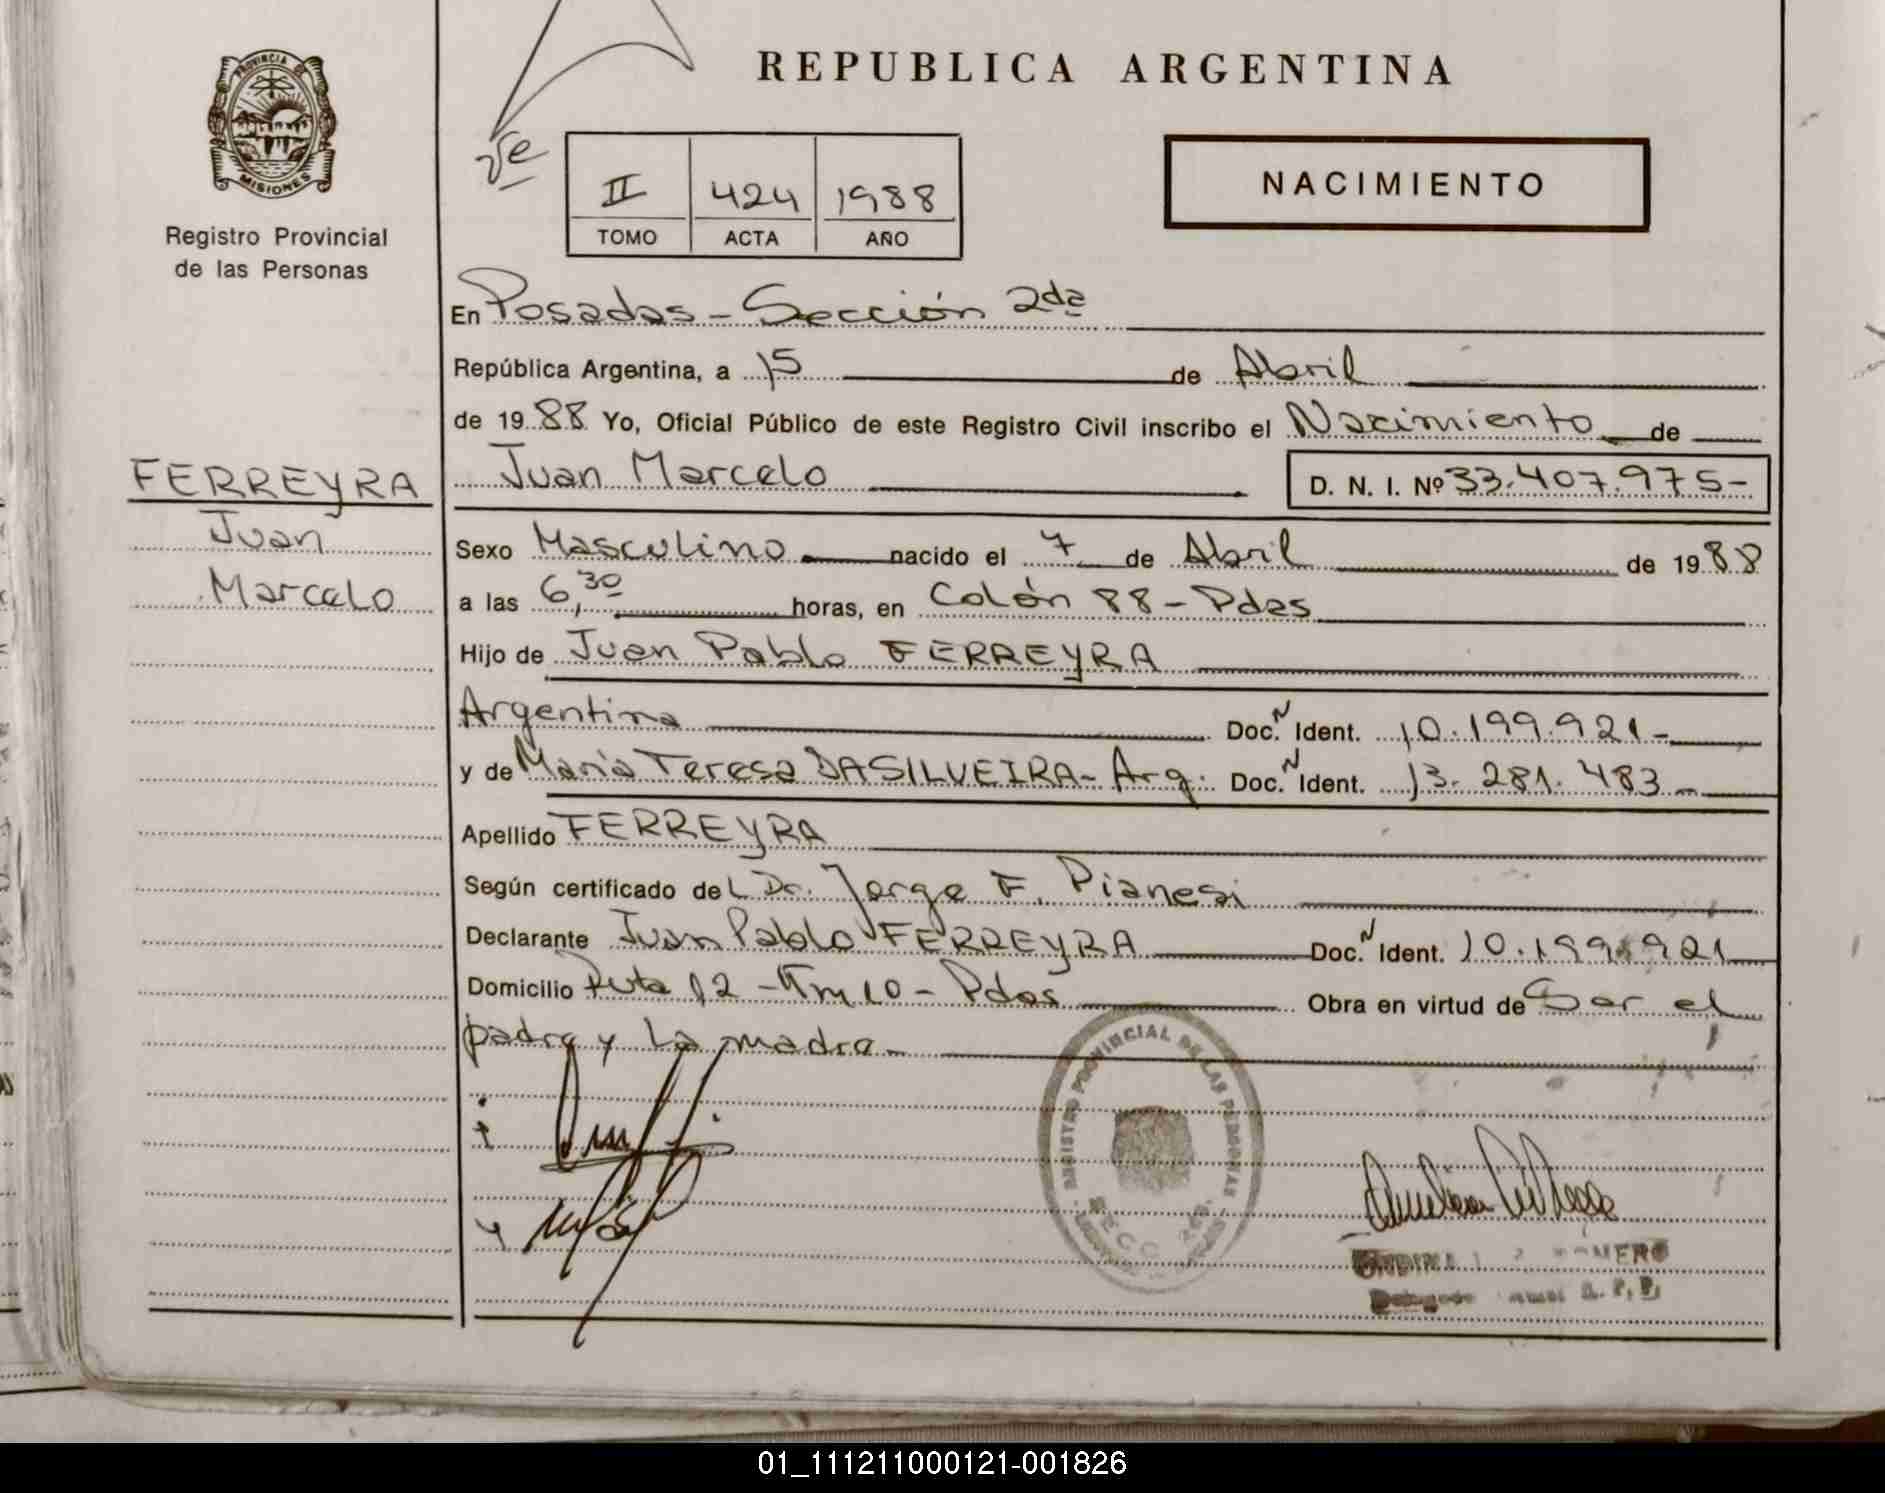 REPUBLICA ARGENTINA
PROVINCIA DE
MISIONES
Registro Provincial
de las Personas
Ve
II 424 1988
TOMO ACTA AÑO
NACIMIENTO
En Posadas - Sección 2da
República Argentina, a 15 de Abril
de 1988 Yo, Oficial Público de este Registro Civil inscribo el Nacimiento de
FERREYRA
Juan
Marcelo
Juan Marcelo D. N. I. Nº 33.407.975-
Sexo Masculino nacido el 7 de Abril de 1988
a las 6,30 horas, en Colón 88 - Pdas
Hijo de Juan Pablo FERREYRA
Argentina Doc. N Ident. 10.199.921-
y de María Teresa DASILVEIRA - Arg. Doc. N Ident. 13.281.483-
Apellido FERREYRA
Según certificado del Dr. Jorge F. Pianesi
Declarante Juan Pablo FERREYRA Doc. N Ident. 10.199.921
Domicilio Ruta 12 - Km 10 - Pdas Obra en virtud de Ser el
padre y la madre
REGISTRO PROVINCIAL DE LAS PERSONAS
SECC. 2da.
01_111211000121-001826